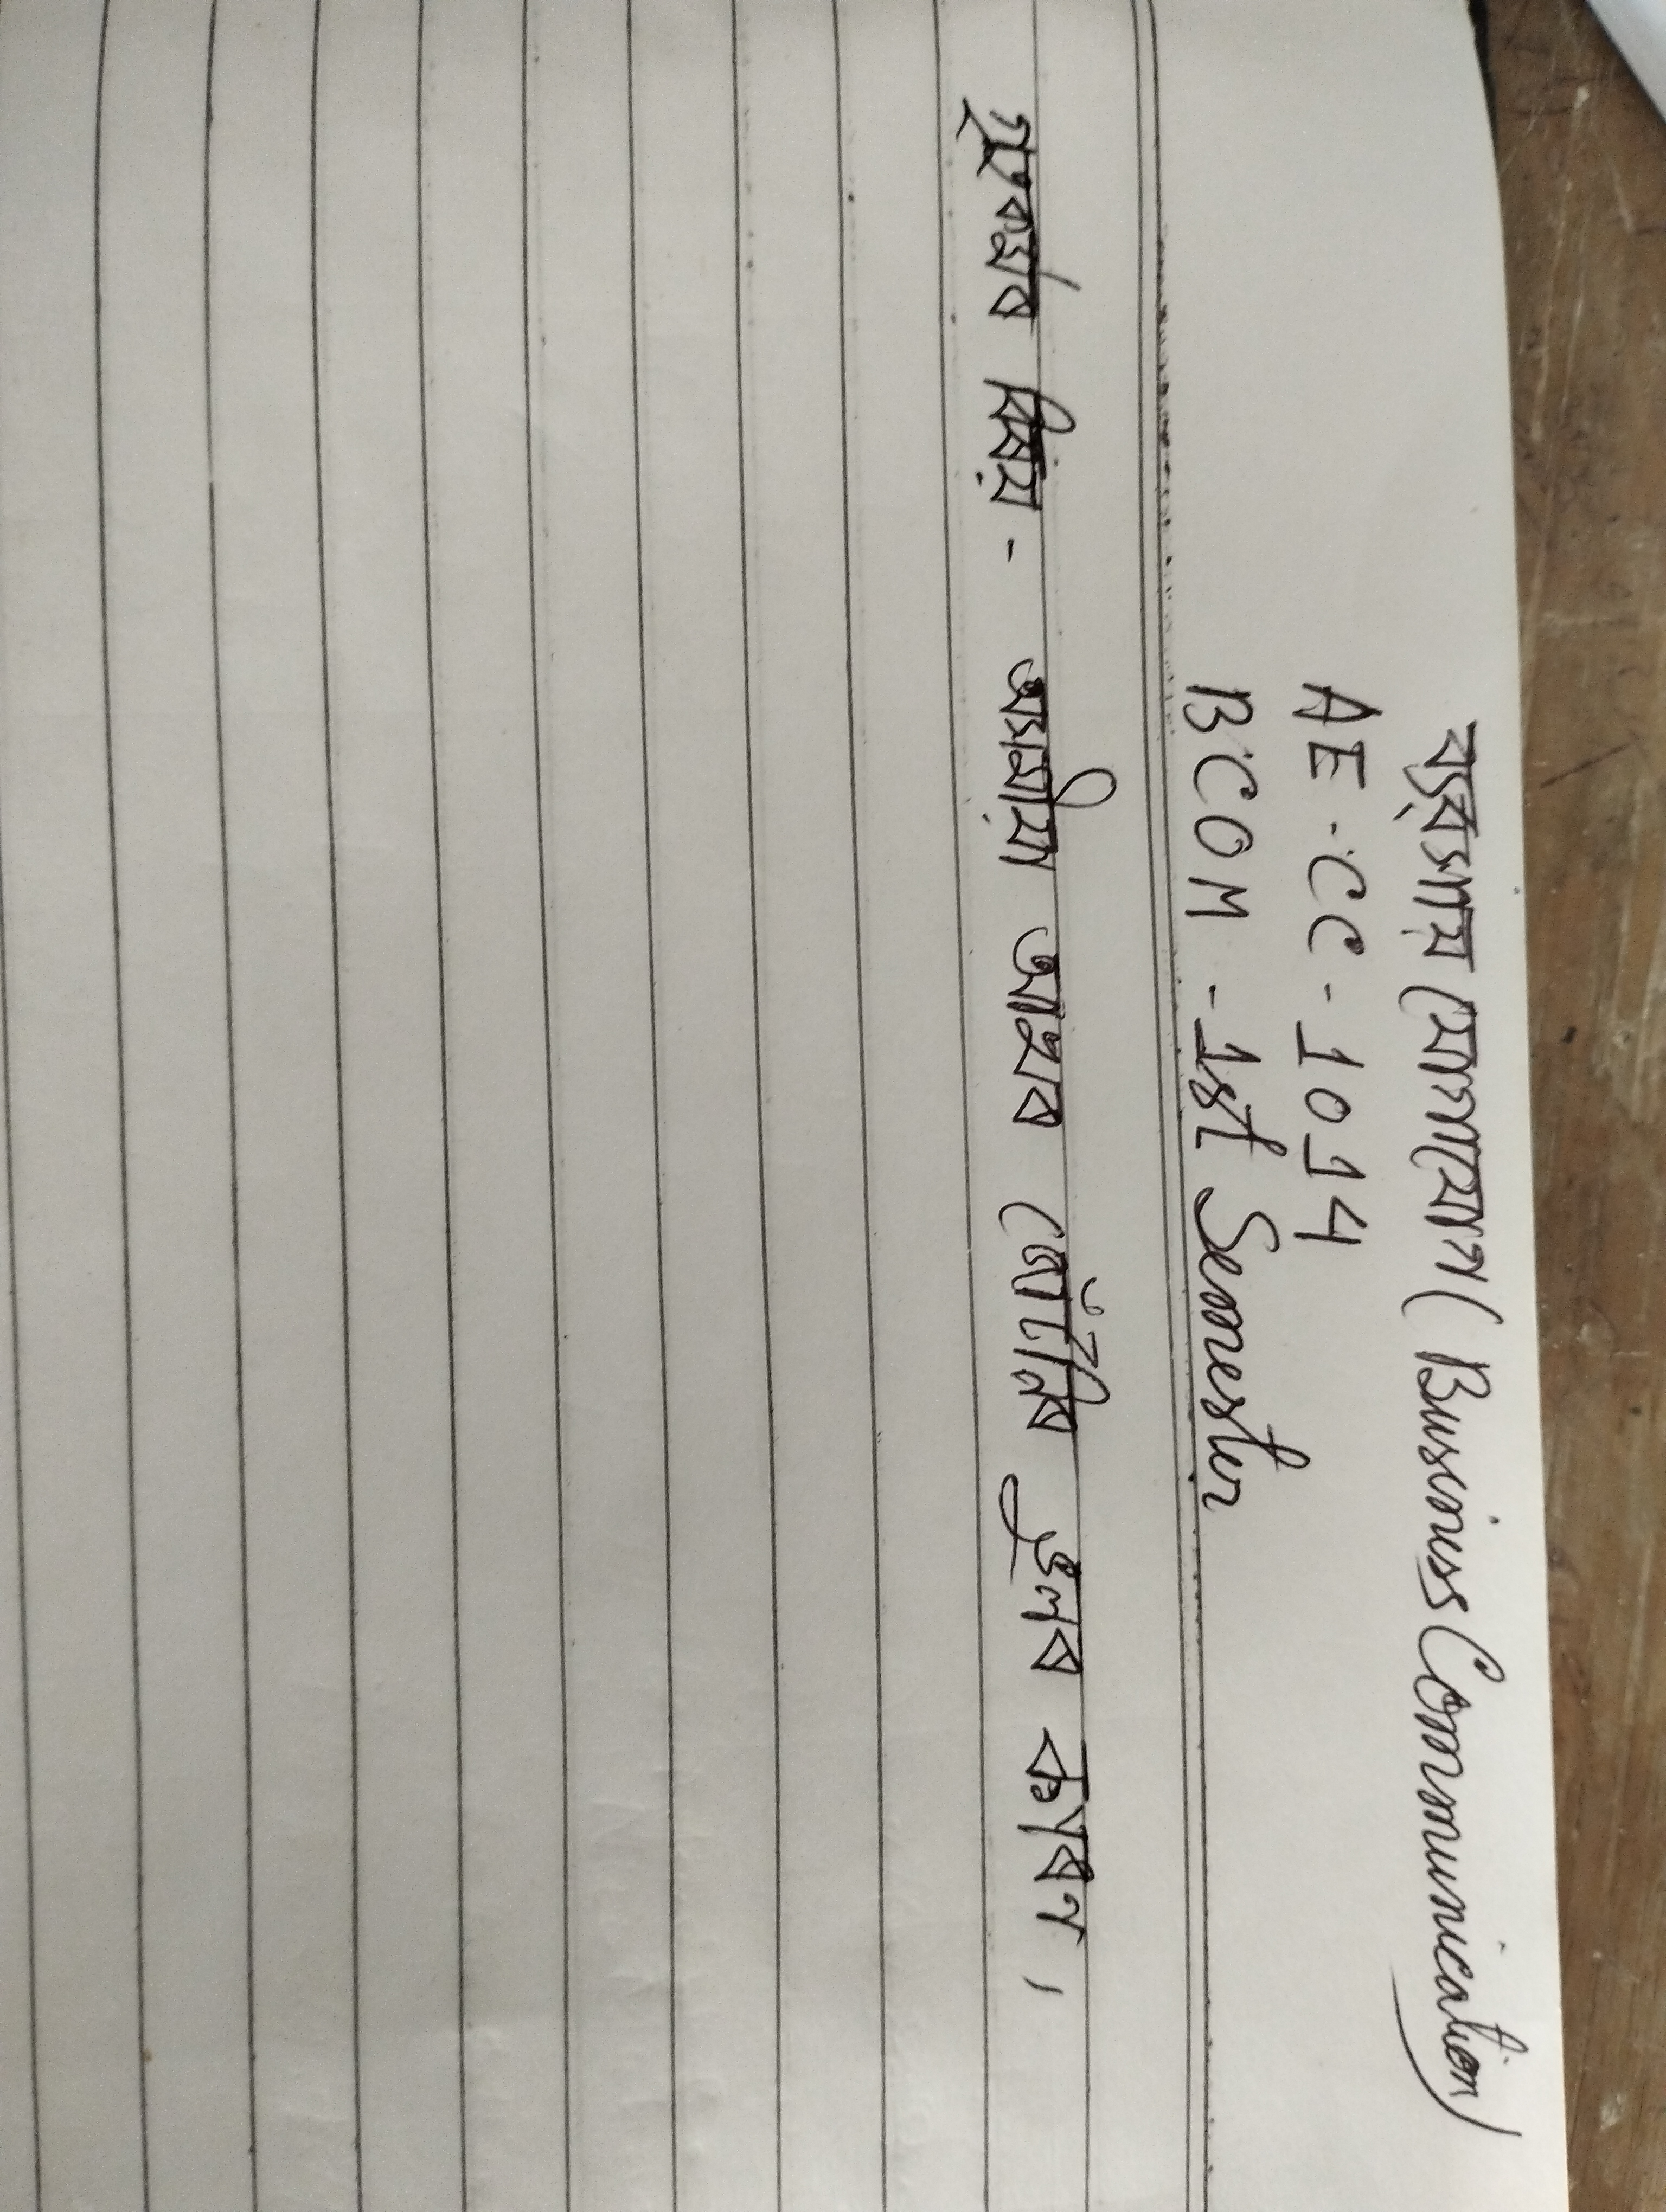 ব্যৱসায় যোগাযোগ ( Business Communication)
AE - CC - 1014
BCOM - 1st Semester
বিষয় - অসমীয়া আখৰ জোঁটনিৰ ভুলৰ কাৰণ ।